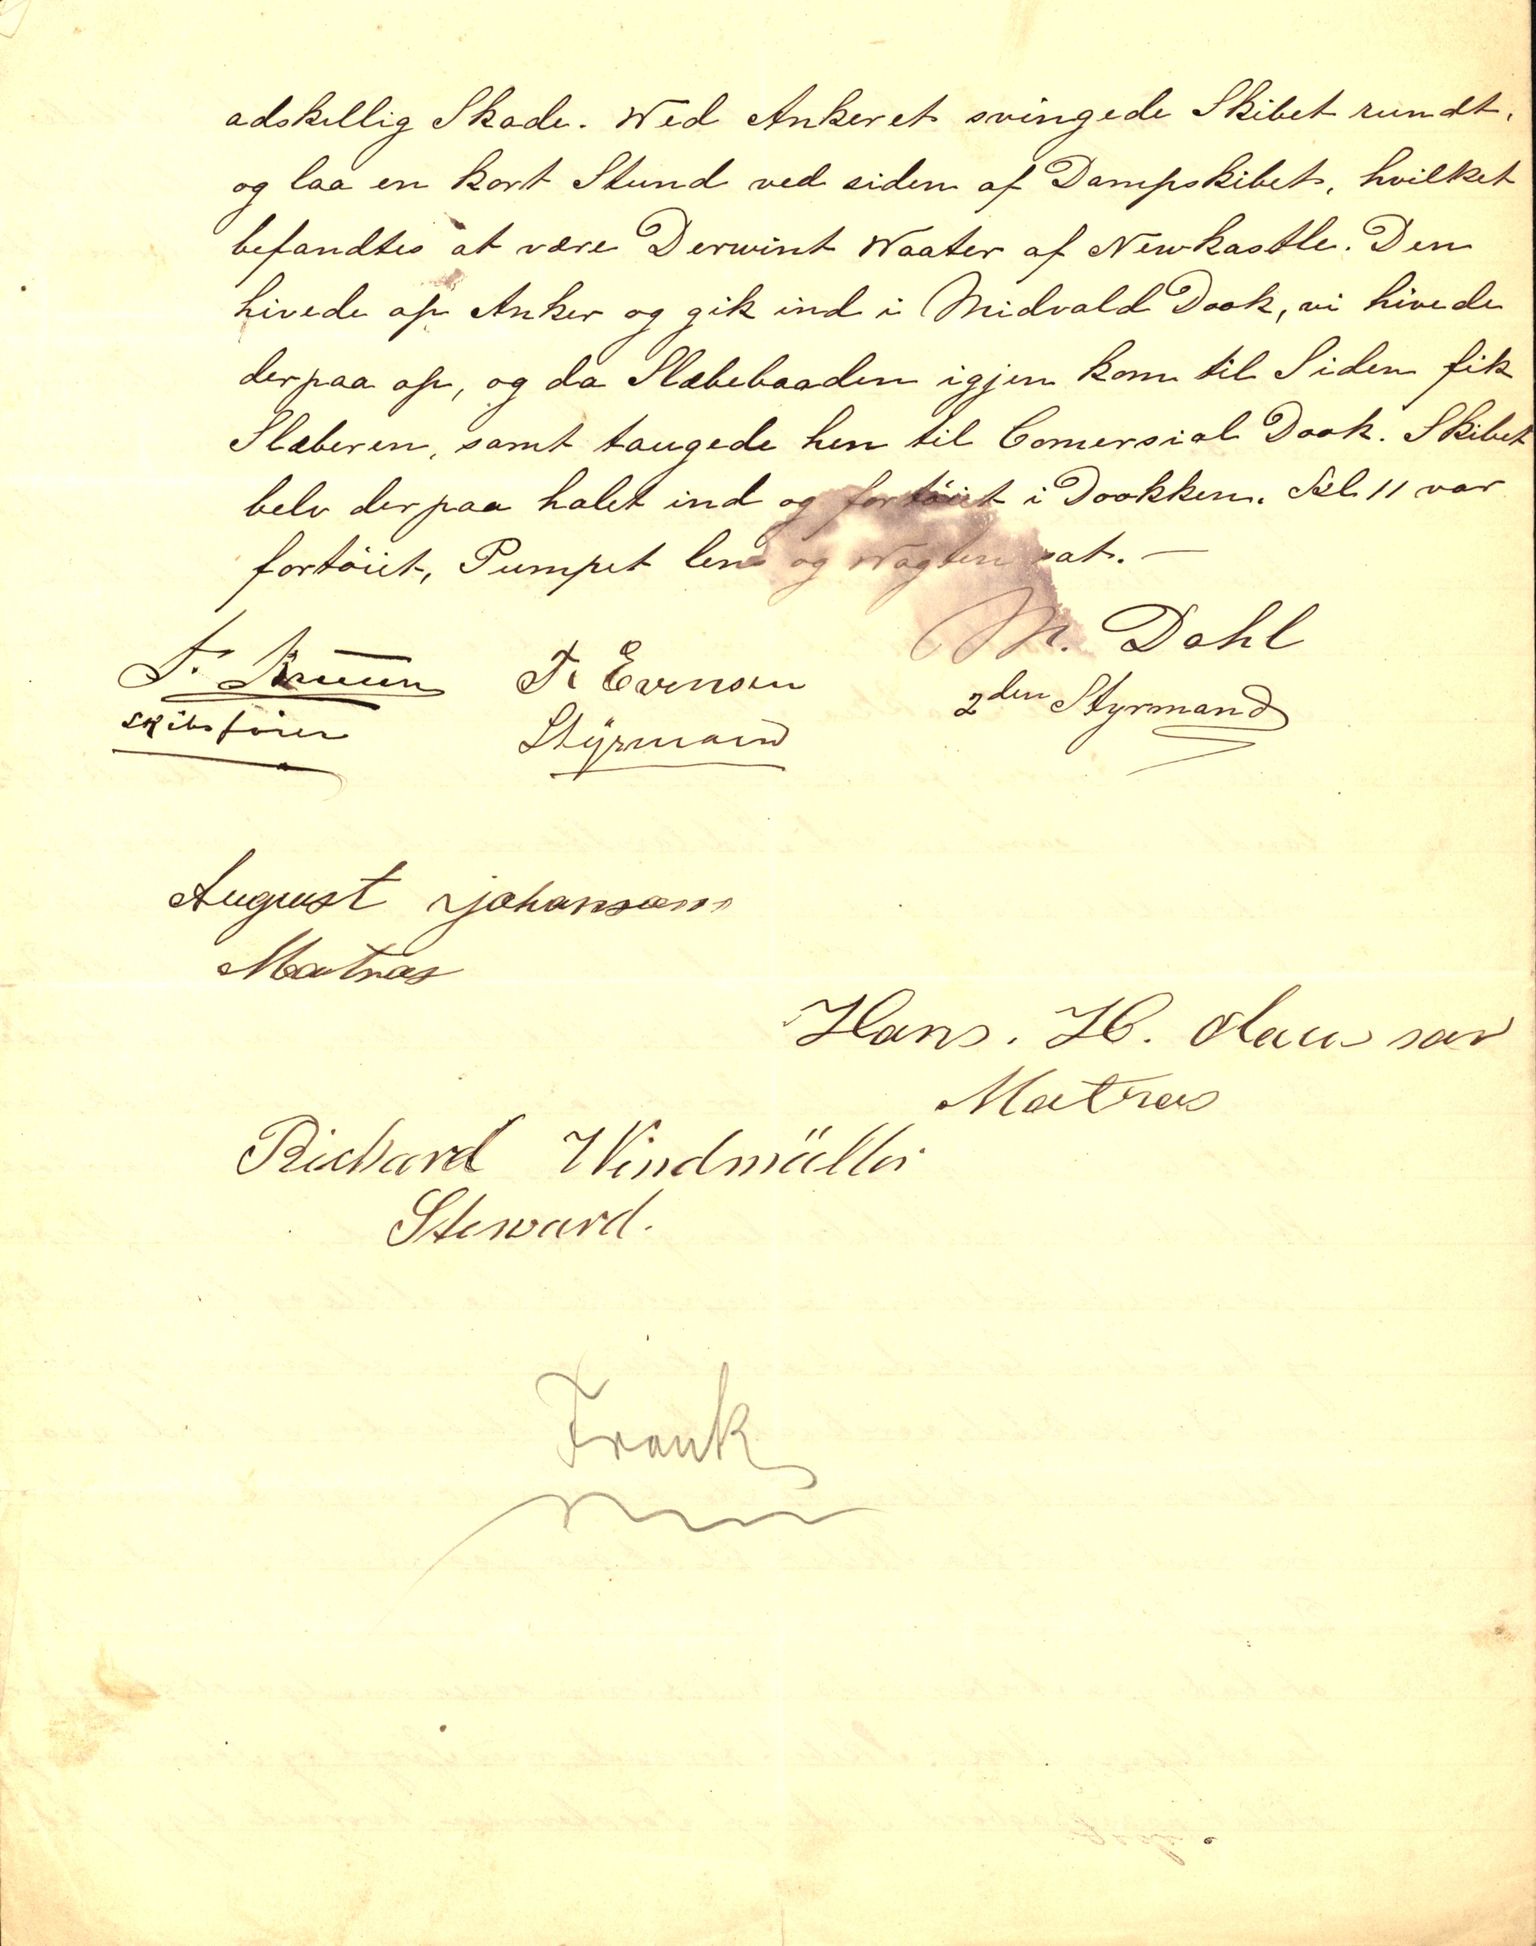 adskellig Skade. Wed Ankeret svingede Skibet rundt,
og laa en kort Stund ved siden af Dampskibet, hvilket
befandtes at være Derwint Waater af Newkastle. Den
hivede op Anker og gik ind i Midvald Dook, vi hivede
derpaa op, og da Slæbebaaden igjen kom til Siden fik
Slæberen, samt taugede hen til Comersial Dook. Skibet
belv derpaa halet ind og fortöiet i Dookken. Kl 11 var
fortöiet, Pumpet lens og Wagten sat. —
F. Bruun
Skibsförer
T. Evensen
Styrmand
M. Dahl
2den Styrmand
August Johanson
Matros
Hans. H.
Matros
Richard Windmüller
Steward.
Frank